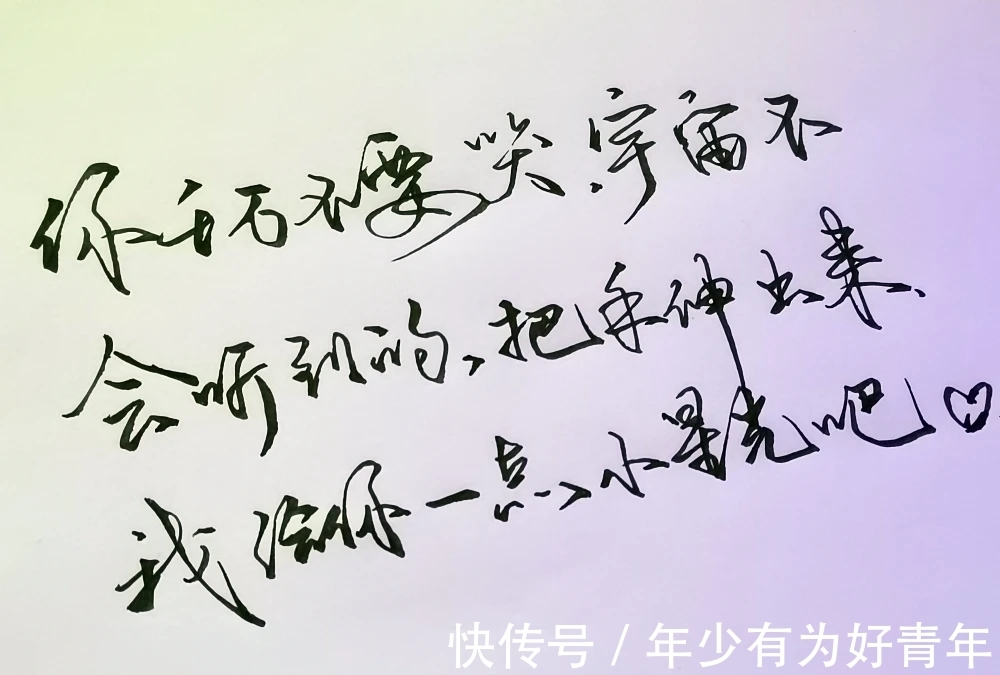 你千万不要哭.宇宙不
会听到的、把手伸出来、
我给你一点点小星光吧♡
快传号/年少有为好青年